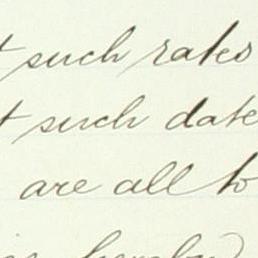 t such rates
t such date
are all to
hereby